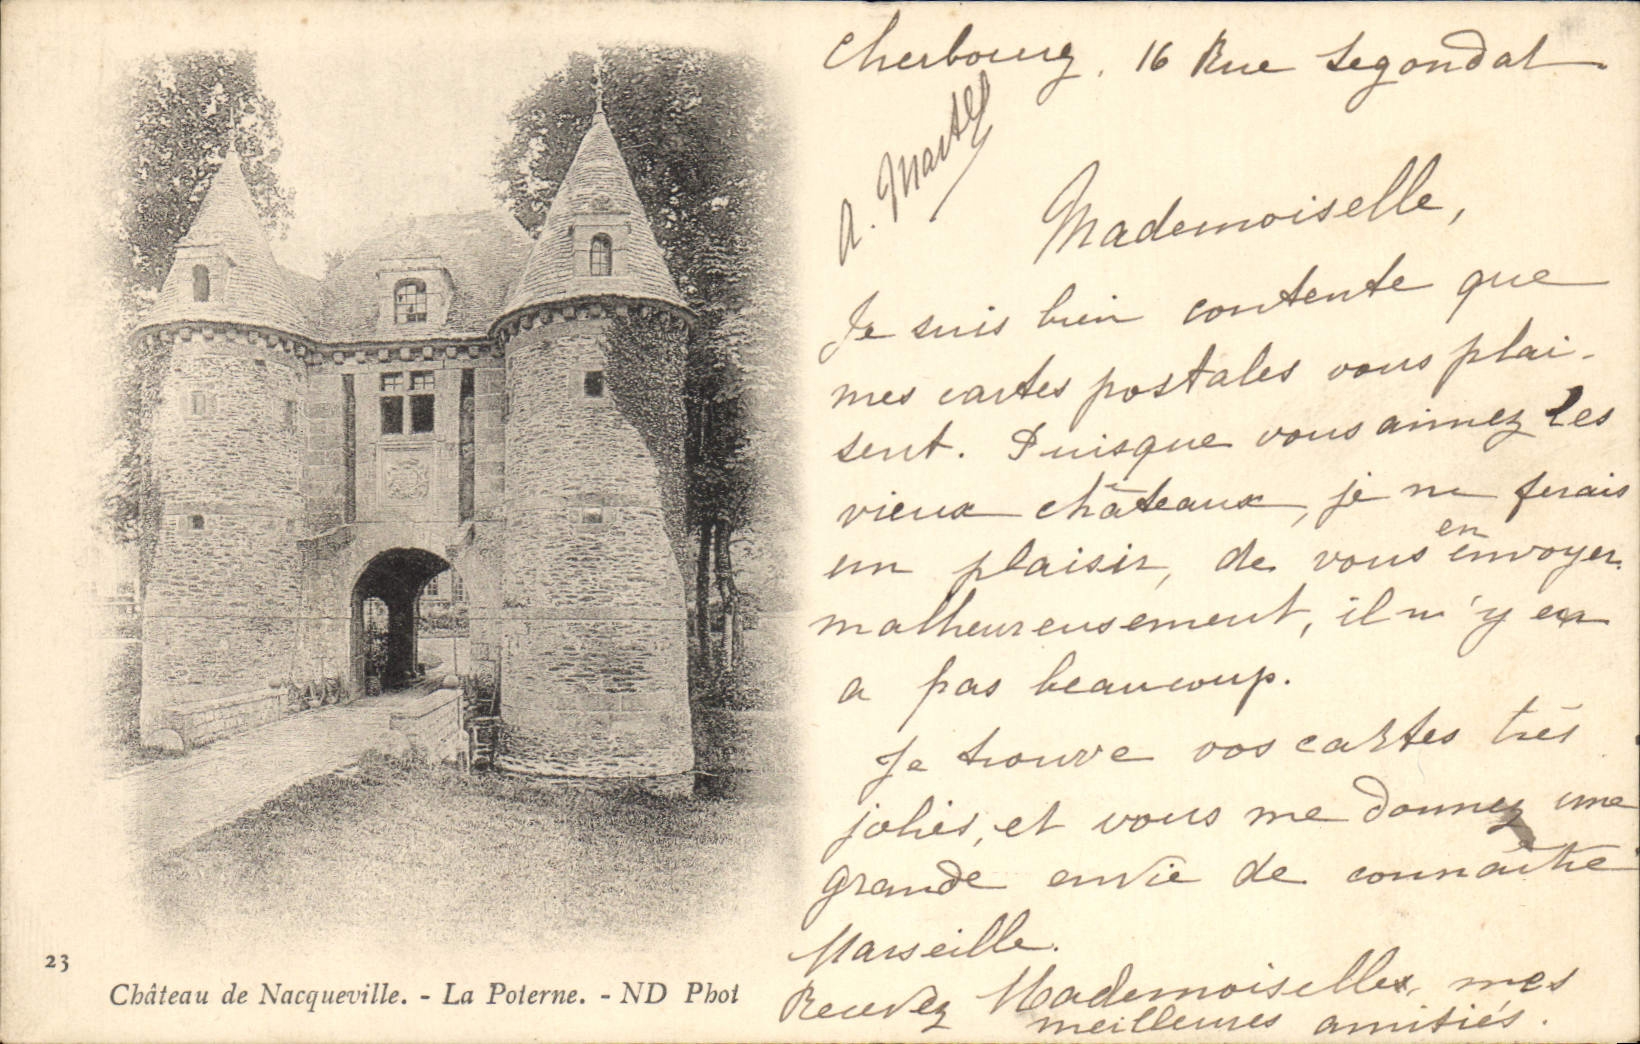 Cherbourg, 16 Rue Segondat.
A. Martel
Mademoiselle,
Je suis bien contente que
mes cartes postales vous plai-
sent. Puisque vous aimez les
vieux châteaux, je me ferais
un plaisir, de vous en envoyer.
malheureusement, il n'y en
a pas beaucoup.
Je trouve vos cartes très
jolies, et vous me donnez une
grande envie de connaître
Marseille.
Recevez Mademoiselle, mes
meilleures amitiés.
23
Château de Nacqueville. - La Poterne. - ND Phot